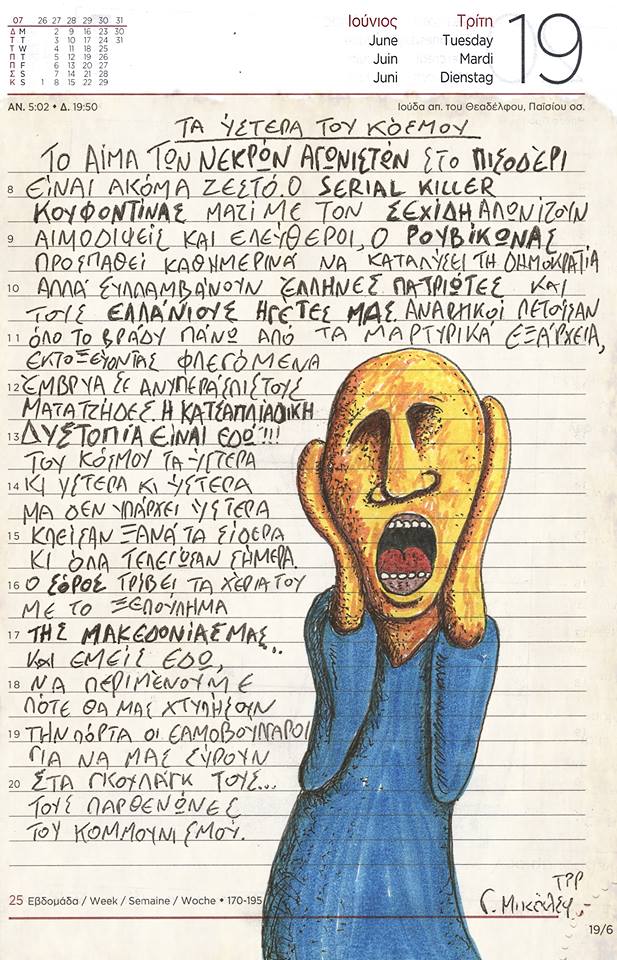 07 26 27 28 29 30 31
Δ M 2 9 16 23 30
Τ T 3 10 17 24 31
Τ W 4 11 18 25
Π T 5 12 19 26
Π F 6 13 20 27
Σ S 7 14 21 28
Κ S 1 8 15 22 29
Ιούνιος Τρίτη
June Tuesday
Juin Mardi
Juni Dienstag
19
ΑΝ. 5:02 • Δ. 19:50
Ιούδα απ. του Θεαδέλφου, Παϊσίου οσ.
ΤΑ ΎΣΤΕΡΑ ΤΟΥ ΚΌΣΜΟΥ
ΤΟ ΑΊΜΑ ΤΩΝ ΝΕΚΡΏΝ ΑΓΩΝΙΣΤΏΝ ΣΤΟ ΠΙΣΟΔΈΡΙ
8 ΕΊΝΑΙ ΑΚΌΜΑ ΖΕΣΤΌ. Ο SERIAL KILLER
ΚΟΥΦΟΝΤΊΝΑΣ ΜΑΖΊ ΜΕ ΤΟΝ ΣΕΧΊΔΗ ΑΛΩΝΊΖΟΥΝ
9 ΑΙΜΟΔΙΨΕΊΣ ΚΑΙ ΕΛΕΎΘΕΡΟΙ, Ο ΡΟΥΒΊΚΩΝΑΣ
ΠΡΟΣΠΑΘΕΊ ΚΑΘΗΜΕΡΙΝΆ ΝΑ ΚΑΤΑΛΎΣΕΙ ΤΗ ΔΗΜΟΚΡΑΤΊΑ
10 ΑΛΛΆ ΣΥΛΛΑΜΒΆΝΟΥΝ ΈΛΛΗΝΕΣ ΠΑΤΡΙΏΤΕΣ ΚΑΙ
ΤΟΥΣ ΕΛΛΆΝΙΟΥΣ ΗΓΈΤΕΣ ΜΑΣ. ΑΝΑΡΧΙΚΟΊ ΠΕΤΟΎΣΑΝ
11 ΌΛΟ ΤΟ ΒΡΆΔΥ ΠΆΝΩ ΑΠΌ ΤΑ ΜΑΡΤΥΡΙΚΆ ΕΞΆΡΧΕΙΑ,
ΕΚΤΟΞΕΎΟΝΤΑΣ ΦΛΕΓΌΜΕΝΑ
12 ΈΜΒΡΥΑ ΣΕ ΑΝΥΠΕΡΆΣΠΙΣΤΟΥΣ
ΜΑΤΑΤΖΉΔΕΣ. Η ΚΑΤΣΑΠΛΙΆΔΙΚΗ
13 ΔΥΣΤΟΠΊΑ ΕΊΝΑΙ ΕΔΏ!!!
ΤΟΥ ΚΌΣΜΟΥ ΤΑ ΎΣΤΕΡΑ
14 ΚΙ ΎΣΤΕΡΑ ΚΙ ΎΣΤΕΡΑ
ΜΑ ΔΕΝ ΥΠΆΡΧΕΙ ΎΣΤΕΡΑ
15 ΚΛΕΊΣΑΝ ΞΑΝΆ ΤΑ ΣΊΔΕΡΑ
ΚΙ ΌΛΑ ΤΕΛΕΊΩΣΑΝ ΣΉΜΕΡΑ.
16 Ο ΣΌΡΟΣ ΤΡΊΒΕΙ ΤΑ ΧΈΡΙΑ ΤΟΥ
ΜΕ ΤΟ ΞΕΠΟΎΛΗΜΑ
17 ΤΗΣ ΜΑΚΕΔΟΝΊΑΣ ΜΑΣ...
ΚΑΙ ΕΜΕΊΣ ΕΔΏ,
18 ΝΑ ΠΕΡΙΜΈΝΟΥΜΕ
ΠΌΤΕ ΘΑ ΜΑΣ ΧΤΥΠΉΣΟΥΝ
19 ΤΗΝ ΠΌΡΤΑ ΟΙ ΕΑΜΟΒΟΎΛΓΑΡΟΙ
ΓΙΑ ΝΑ ΜΑΣ ΣΎΡΟΥΝ
20 ΣΤΑ ΓΚΟΥΛΆΓΚ ΤΟΥΣ...
ΤΟΥΣ ΠΑΡΘΕΝΏΝΕΣ
ΤΟΥ ΚΟΜΜΟΥΝΙΣΜΟΎ.
25 Εβδομάδα / Week / Semaine / Woche • 170-195
19/6